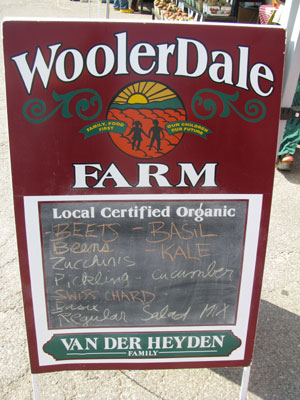 WoolerDale
FAMILY, FOOD FIRST
OUR CHILDREN OUR FUTURE
FARM
Local Certified Organic
BEETS - BASIL
Beans - KALE
Zucchinis
Pickling - cucumber
SWISS CHARD
Regular Salad Mix
VAN DER HEYDEN
FAMILY